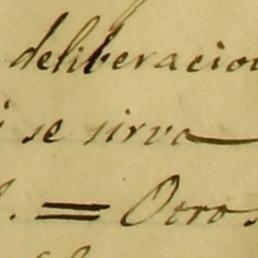 deliberacion
i se sirva
. = Otros